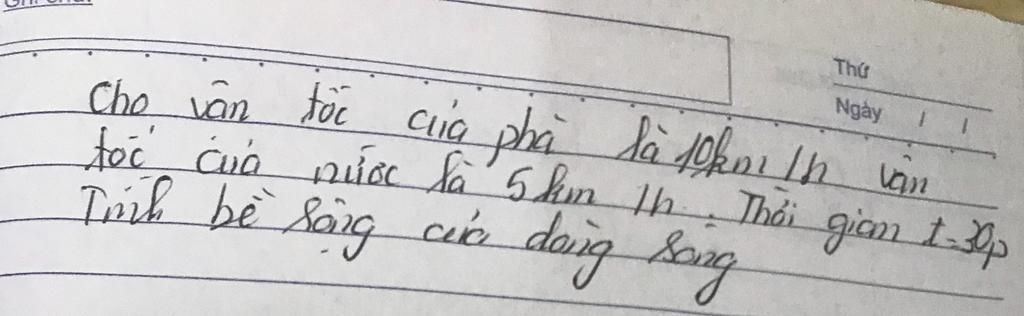 Ghi chú:
Thứ
Ngày / /
Cho vân tốc của phà là 10km/h vân
tốc của nước là 5km/h. Thời gian t=30p
Tính bề rộng của dòng sông